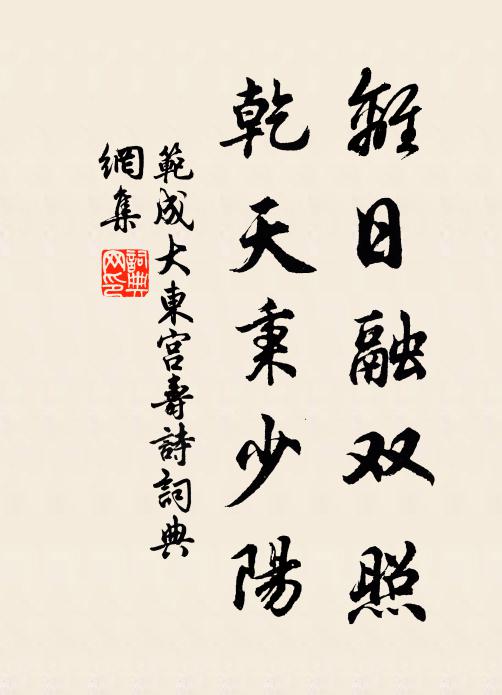 離日融双照
乾天秉少陽
範成大東宮壽詩詞典
網集
詞典
网印